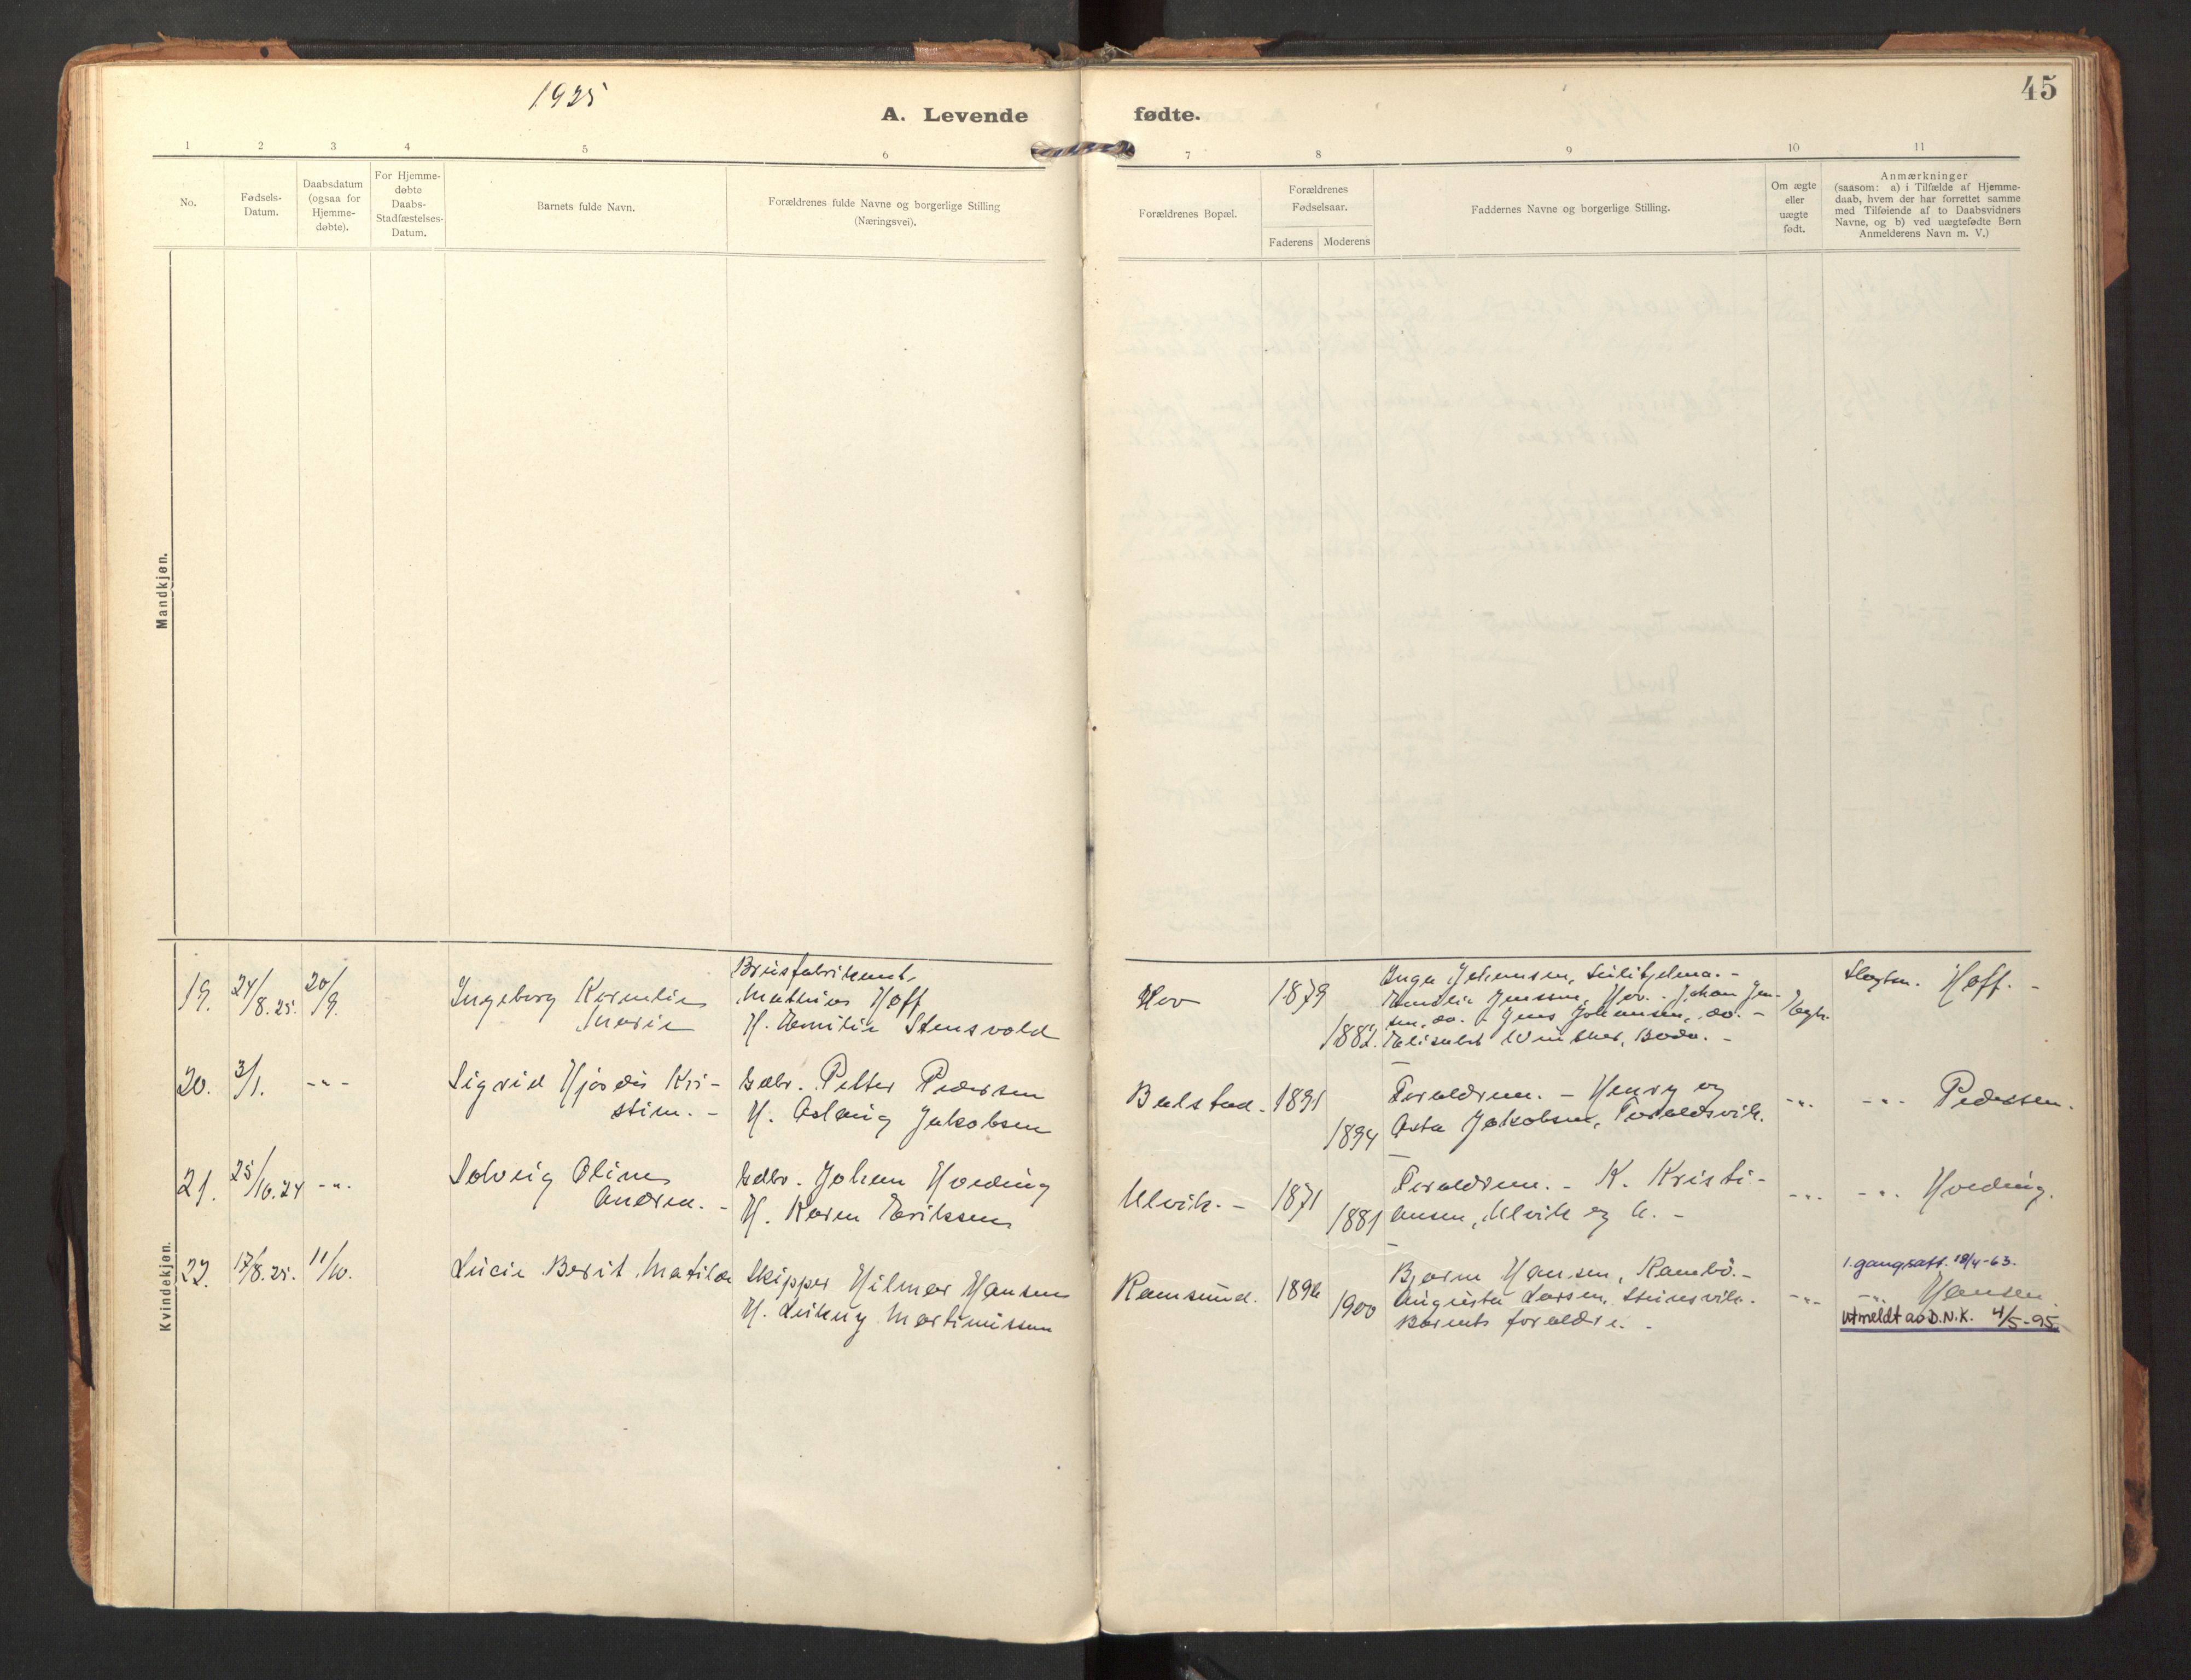 1925
45
A. Levende fødte.
1 2 3 4 5 6 7 8 9 10 11
No.
Fødsels-
Datum.
Daabsdatum
(ogsaa for
Hjemme-
døbte).
For Hjemme-
døbte
Daabs-
Stadfæstelses-
Datum.
Barnets fulde Navn.
Forældrenes fulde Navne og borgerlige Stilling
(Næringsvei).
Forældrenes Bopæl.
Forældrenes
Fødselsaar.
Faderens Moderens
Faddernes Navne og borgerlige Stilling.
Om ægte
eller
uægte
født.
Anmærkninger
(saasom: a) i Tilfælde af Hjemme-
daab, hvem der har forrettet samme
med Tilføiende af to Daabsvidners
Navne, og b) ved uægtefødte Børn
Anmelderens Navn m. V.)
Mandkjøn.
Kvindekjøn.
19. 24/8.25. 20/9.
Ingeborg Kornelie
Marie
Brusfabrikant
Mathias Hoff
H. Emilie Stensvold
Hov
1879
1882.
Inga Johansen, Sulitjelma. -
Emelie Jenssen, Hov. - Johan Jen-
sen, do. - Jens Johansen, do. -
Elisabet Winther, Bodø. -
Egte.
Hoff. -
20. 3/1. -"-
Sigrid Hjørdis Kri-
stine. -
Gdbr. Petter Pedersen
H. Aslaug Jakobsen
Balstad. -
1891
1894
Foreldrene. - Henry og
Asta Jakobsen, Toraldsvik.
-"- -"- Pedersen.
21. 25/10.24 -"-
Solveig Oline
Andrea. -
Gdbr. Johan Hveding
H. Karen Eriksen
Ulvik. -
1871
1881
Foreldrene. - K. Kristi-
ansen, Ulvik og h. -
-"- -"- Hveding.
22. 17/8.25. 11/10.
Lucie Berit Matilde
Skipper Hilmar Hansen
H. Martinussen
Ramsund.
1896
1900
Bjarne Hansen, Rambö. -
Augusta Larsen, Steinsvik. -
Barnets foreldre. -
-"-
1. gangsatt. 18/4-63.
-"- Hansen.
utmeldt av D.N.K. 4/5-95